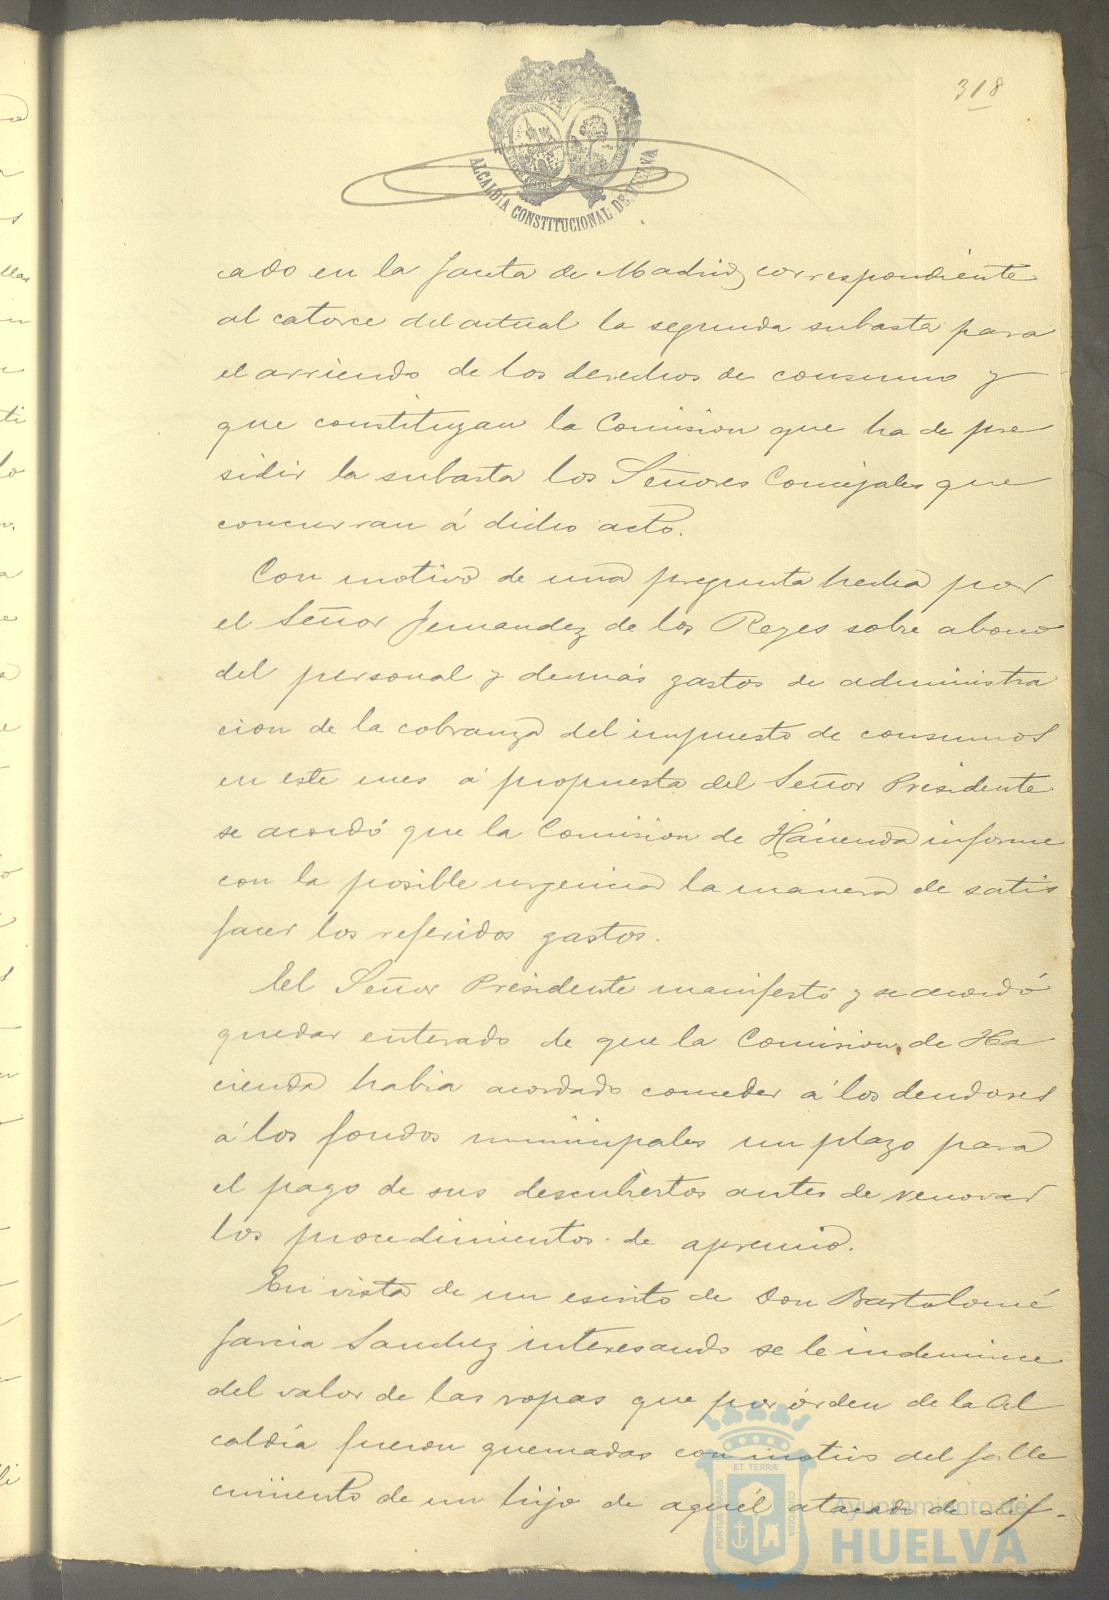 318
ALCALDÍA CONSTITUCIONAL DE HUELVA
cado en la Gaceta de Madrid, correspondiente
al catorce del actual la segunda subasta para
el arriendo de los derechos de consumo y
que constituyan la Comision que ha de pre
sidir la subasta los Señores Concejales que
concurran á dicho acto.
Con motivo de una pregunta hecha por
el Señor Fernandez de los Reyes sobre abono
del personal y demás gastos de administra
cion de la cobranza del impuesto de consumos
en este mes á propuesta del Señor Presidente
se acordó que la Comision de Hacienda informe
con la posible urgencia la manera de satis
facer los referidos gastos.
El Señor Presidente manifestó y se acordó
quedar enterado de que la Comision de Ha
cienda habia acordado conceder á los deudores
á los fondos municipales un plazo para
el pago de sus descubiertos antes de renovar
los procedimientos de apremio.
En vista de un escrito de Don Bartolomé
Garcia Sanchez interesando se le indemnice
del valor de las ropas que por órden de la Al
caldía fueron quemadas con motivo del falle
cimiento de un hijo de aquél atacado de dif-
PORTUS MARIS ET TERRÆ CUSTODIA
Ayuntamiento de
HUELVA